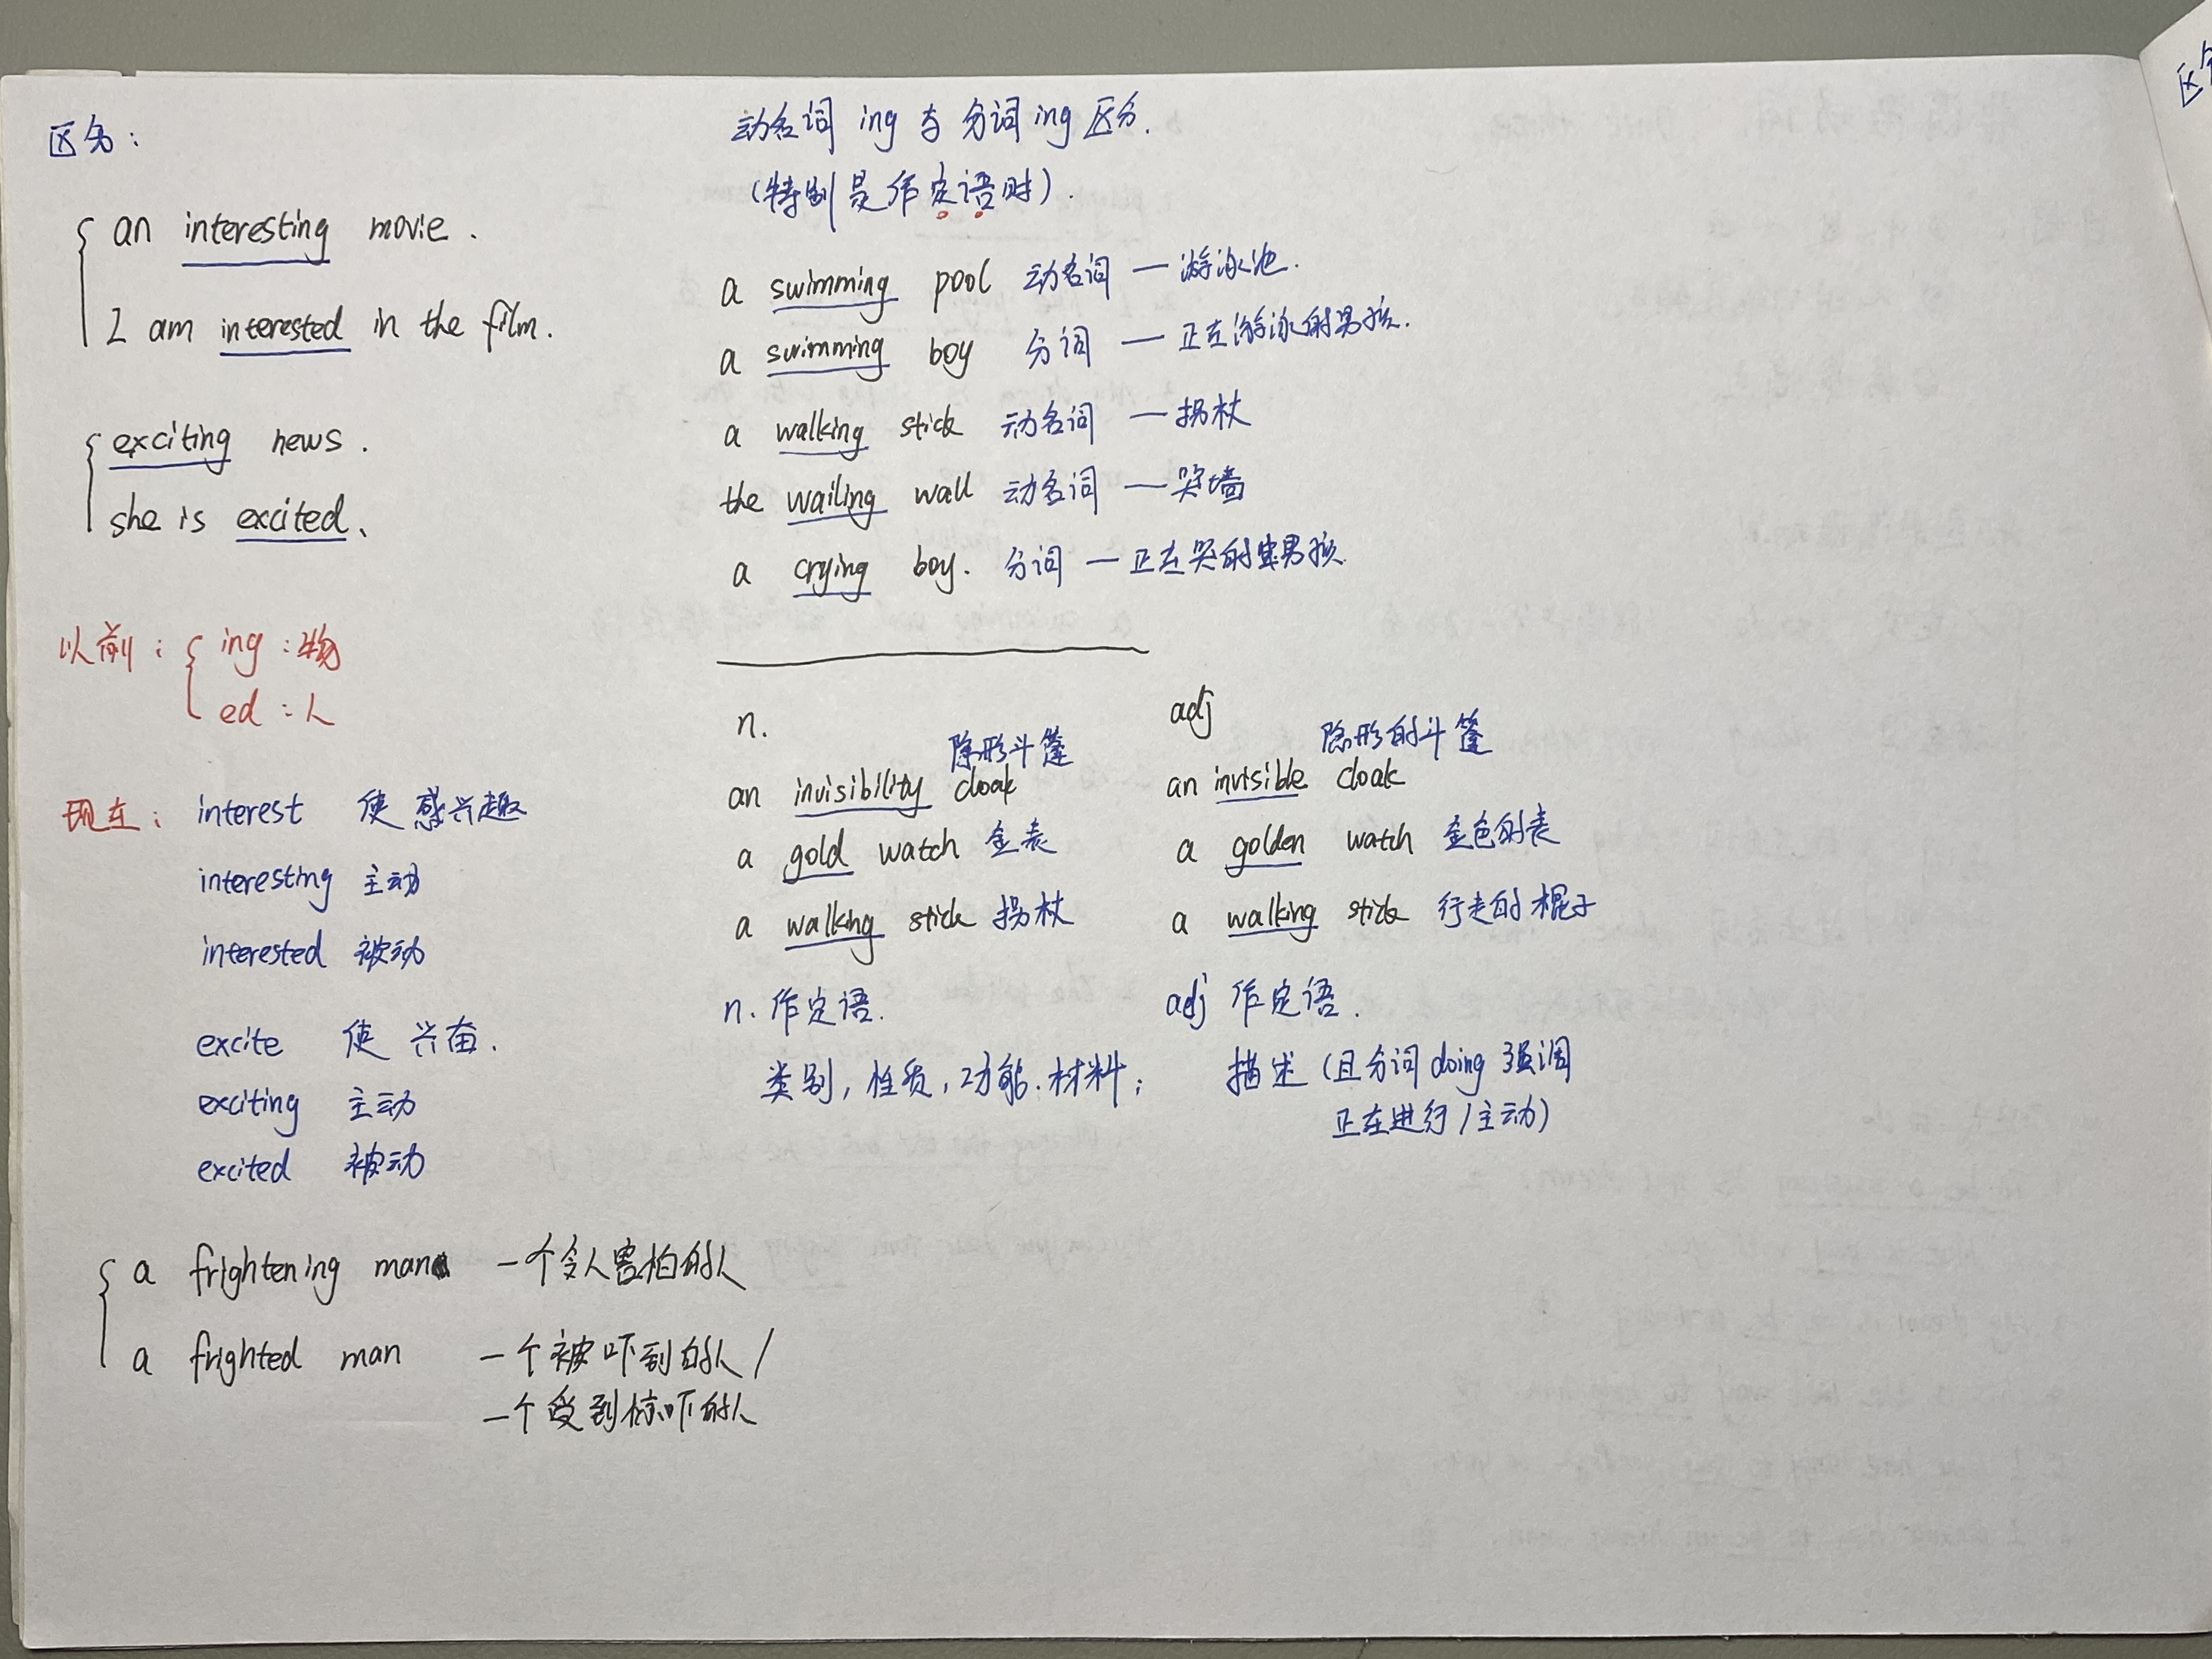 区分：
an interesting movie.
I am interested in the film.
exciting news.
she is excited.
以前：ing：物
ed：人
现在：interest 使 感兴趣
interesting 主动
interested 被动
excite 使 兴奋.
exciting 主动
excited 被动
a frightening man 一个令人害怕的人
a frighted man 一个被吓到的人/
一个受到惊吓的人
动名词 ing 与 分词 ing 区分.
(特别是作定语时).
a swimming pool 动名词 — 游泳池.
a swimming boy 分词 — 正在游泳的男孩.
a walking stick 动名词 — 拐杖
the wailing wall 动名词 — 哭墙
a crying boy. 分词 — 正在哭的男孩
n.
隐形斗篷
an invisibility cloak
a gold watch 金表
a walking stick 拐杖
n. 作定语.
类别, 性质, 功能. 材料;
adj
隐形的斗篷
an invisible cloak
a golden watch 金色的表
a walking stick 行走的棍子
adj 作定语.
描述 (且分词 doing 强调
正在进行/主动)
区分